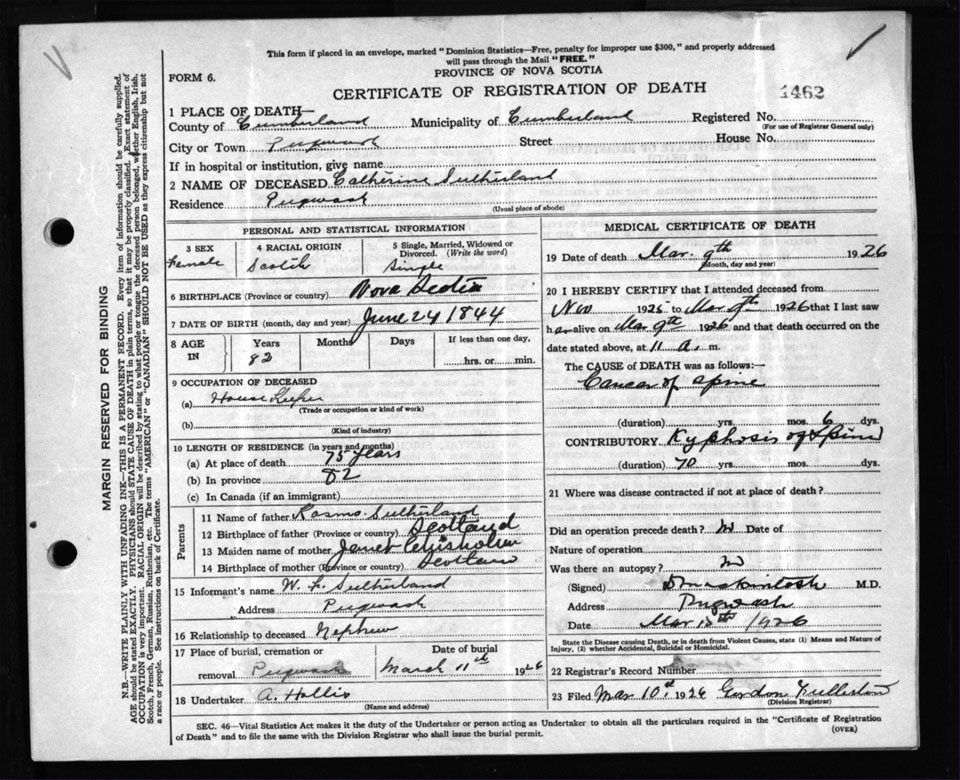 This form if placed in an envelope, marked "Dominion Statistics—Free, penalty for improper use $300," and properly addressed
will pass through the Mail "FREE."
PROVINCE OF NOVA SCOTIA
FORM 6.
CERTIFICATE OF REGISTRATION OF DEATH
1462
1 PLACE OF DEATH—
County of Cumberland Municipality of Cumberland Registered No.
(For use of Registrar General only)
City or Town Pugwash Street House No.
If in hospital or institution, give name
2 NAME OF DECEASED Catherine Sutherland
Residence Pugwash
(Usual place of abode)
PERSONAL AND STATISTICAL INFORMATION
3 SEX 4 RACIAL ORIGIN 5 Single, Married, Widowed or Divorced. (Write the word)
Female Scotch Single
6 BIRTHPLACE (Province or country) Nova Scotia
7 DATE OF BIRTH (month, day and year) June 24 1844
8 AGE IN Years Months Days If less than one day,
82 hrs. or min.
9 OCCUPATION OF DECEASED
(a) House Keeper
(Trade or occupation or kind of work)
(b)
(Kind of industry)
10 LENGTH OF RESIDENCE (in years and months)
(a) At place of death 75 years
(b) In province 82
(c) In Canada (if an immigrant)
Parents
11 Name of father Sutherland
12 Birthplace of father (Province or country) Scotland
13 Maiden name of mother Janet Chisholm
14 Birthplace of mother (Province or country) Scotland
15 Informant's name W. L. Sutherland
Address Pugwash
16 Relationship to deceased Nephew
17 Place of burial, cremation or removal Pugwash
Date of burial March 11th 1926
18 Undertaker A. Hollis
(Name and address)
MEDICAL CERTIFICATE OF DEATH
19 Date of death Mar. 9th 1926
(Month, day and year)
20 I HEREBY CERTIFY that I attended deceased from
Nov 1925 to Mar 9th 1926 that I last saw
her alive on Mar 9th 1926 and that death occurred on the
date stated above, at 11 a. m.
The CAUSE OF DEATH was as follows:—
Cancer of spine
(duration) yrs. mos. 6 dys.
CONTRIBUTORY Kyphosis of Spine
(duration) 70 yrs. mos. dys.
21 Where was disease contracted if not at place of death?
Did an operation precede death? No Date of
Nature of operation
Was there an autopsy? No
(Signed) Mackintosh M.D.
Address Pugwash
Date Mar 1926
State the Disease causing Death, or in death from Violent Causes, state (1) Means and Nature of
Injury, (2) whether Accidental, Suicidal or Homicidal.
22 Registrar's Record Number
23 Filed Mar 10th 1926 Gordon Fullerton
(Division Registrar)
SEC. 46—Vital Statistics Act makes it the duty of the Undertaker or person acting as Undertaker to obtain all the particulars required in the "Certificate of Registration
of Death" and to file the same with the Division Registrar who shall issue the burial permit.
(OVER)
MARGIN RESERVED FOR BINDING
N.B.—WRITE PLAINLY WITH UNFADING INK—THIS IS A PERMANENT RECORD. Every item of information should be carefully supplied.
AGE should be stated EXACTLY. PHYSICIANS should STATE CAUSE OF DEATH in plain terms, so that it may be properly classified. Exact statement of
OCCUPATION is very important. RACIAL ORIGIN will be described by stating to what people or tongue the deceased person belonged, whether English, Irish,
Scotch, French, German, Russian, Ruthenian, etc. The terms "AMERICAN" or "CANADIAN" SHOULD NOT BE USED as they express citizenship but not
a race or people. See instructions on back of Certificate.